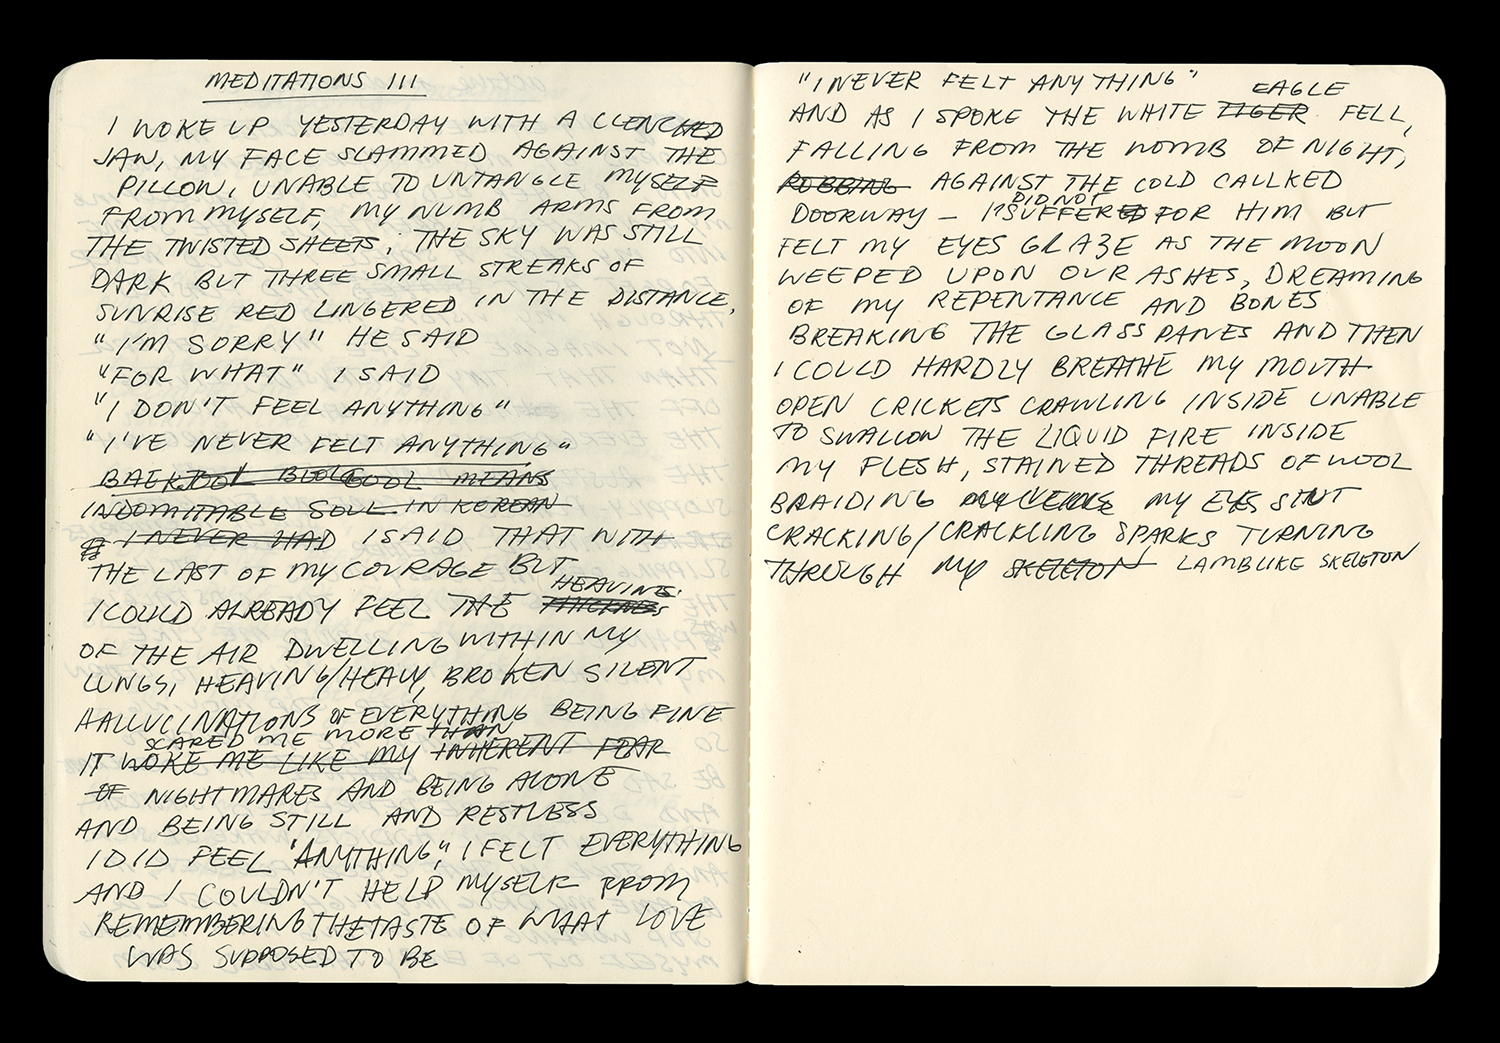 MEDITATIONS III
I WOKE UP YESTERDAY WITH A CLENCHED
JAW, MY FACE SLAMMED AGAINST THE
PILLOW, UNABLE TO UNTANGLE MYSELF
FROM MYSELF, MY NUMB ARMS FROM
THE TWISTED SHEETS; THE SKY WAS STILL
DARK BUT THREE SMALL STREAKS OF
SUNRISE RED LINGERED IN THE DISTANCE,
"I'M SORRY" HE SAID
"FOR WHAT" I SAID
"I DON'T FEEL ANYTHING"
"I'VE NEVER FELT ANYTHING"
MEANS
INDOMITABLE SOUL IN KOREAN
I NEVER HAD I SAID THAT WITH
THE LAST OF MY COURAGE BUT
HEAVING
I COULD ALREADY FEEL THE THICKNESS
OF THE AIR DWELLING WITHIN MY
LUNGS, HEAVING/HEAVY, BROKEN SILENT
HALLUCINATIONS OF EVERYTHING BEING FINE
SCARED ME MORE THAN
IT WOKE ME LIKE MY INHERENT FEAR
OF NIGHTMARES AND BEING ALONE
AND BEING STILL AND RESTLESS
I DID FEEL "ANYTHING", I FELT EVERYTHING
AND I COULDN'T HELP MYSELF FROM
REMEMBERING THE TASTE OF WHAT LOVE
WAS SUPPOSED TO BE
"I NEVER FELT ANYTHING"
EAGLE
AND AS I SPOKE THE WHITE TIGER FELL,
FALLING FROM THE WOMB OF NIGHT,
ROBBING AGAINST THE COLD CALLKED
DID NOT
DOORWAY – I SUFFERED FOR HIM BUT
FELT MY EYES GLAZE AS THE MOON
WEEPED UPON OUR ASHES, DREAMING
OF MY REPENTANCE AND BONES
BREAKING THE GLASS PANES AND THEN
I COULD HARDLY BREATHE MY MOUTH
OPEN CRICKETS CRAWLING INSIDE UNABLE
TO SWALLOW THE LIQUID FIRE INSIDE
MY FLESH, STAINED THREADS OF WOOL
BRAIDING MY EYES SHUT
CRACKING/CRACKLING SPARKS TURNING
THROUGH MY SKELETON LAMBLIKE SKELETON